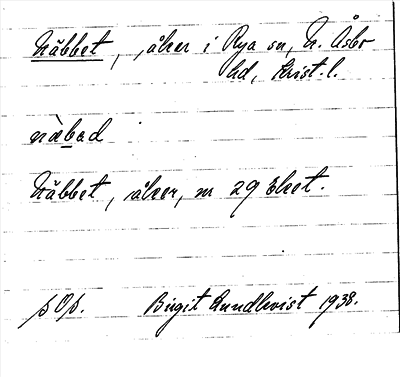 Näbbet, åker i Rya sn, N. Åsbo
hd, Krist. l.
näbad
Näbbet, åker, nr 29 Eket.
p Op. Birgit Lundkvist 1938.